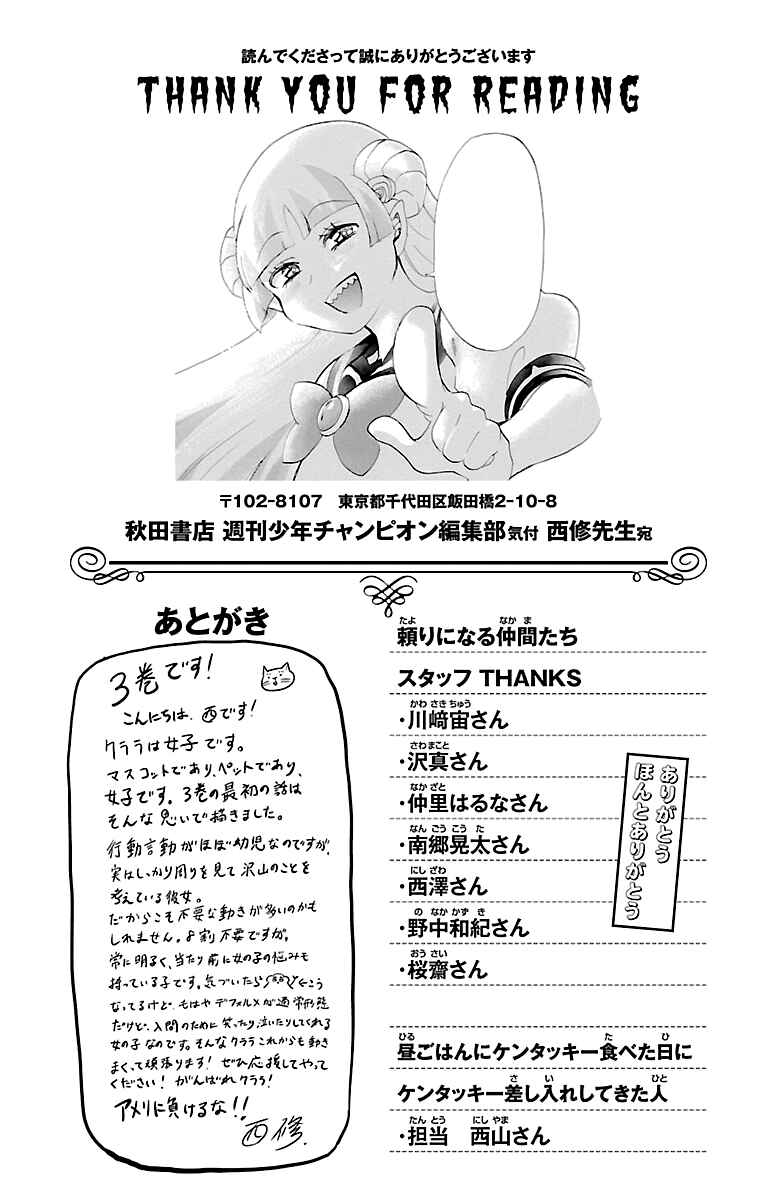 読んでくださって誠にありがとうございます
THANK YOU FOR READING
〒102-8107　東京都千代田区飯田橋2-10-8
秋田書店 週刊少年チャンピオン編集部気付 西修先生宛
あとがき
3巻です!
こんにちは、西です!
クララは女子です。
マスコットであり、ペットであり、
女子です。3巻の最初の話は
そんな思いで描きました。
行動言動がほぼ幼児なのですが、
実はしっかり周りを見て沢山のことを
考えている彼女。
だからこそ不要な動きが多いのかも
しれません。8割不要ですが。
常に明るく、当たり前に女の子の悩みも
持っている子です。気づいたら←こう
なってるけど、もはやデフォルメが通常形態
だけど、入間のために笑ったり泣いたりしてくれる
女の子なのです。そんなクララこれからも動き
まくって頑張ります! ぜひ応援してやって
ください! がんばれクララ!
アメリに負けるな!!
西修.
たよ なか ま
頼りになる仲間たち
スタッフ THANKS
かわ さき ちゅう
・川﨑宙さん
さわ まこと
・沢真さん
なか ざと
・仲里はるなさん
なん ごう こう た
・南郷晃太さん
にし ざわ
・西澤さん
の なか かず き
・野中和紀さん
おう さい
・桜齋さん
ありがとう
ほんとありがとう
ひる た ひ
昼ごはんにケンタッキー食べた日に
さ い ひと
ケンタッキー差し入れしてきた人
たん とう にし やま
・担当　西山さん